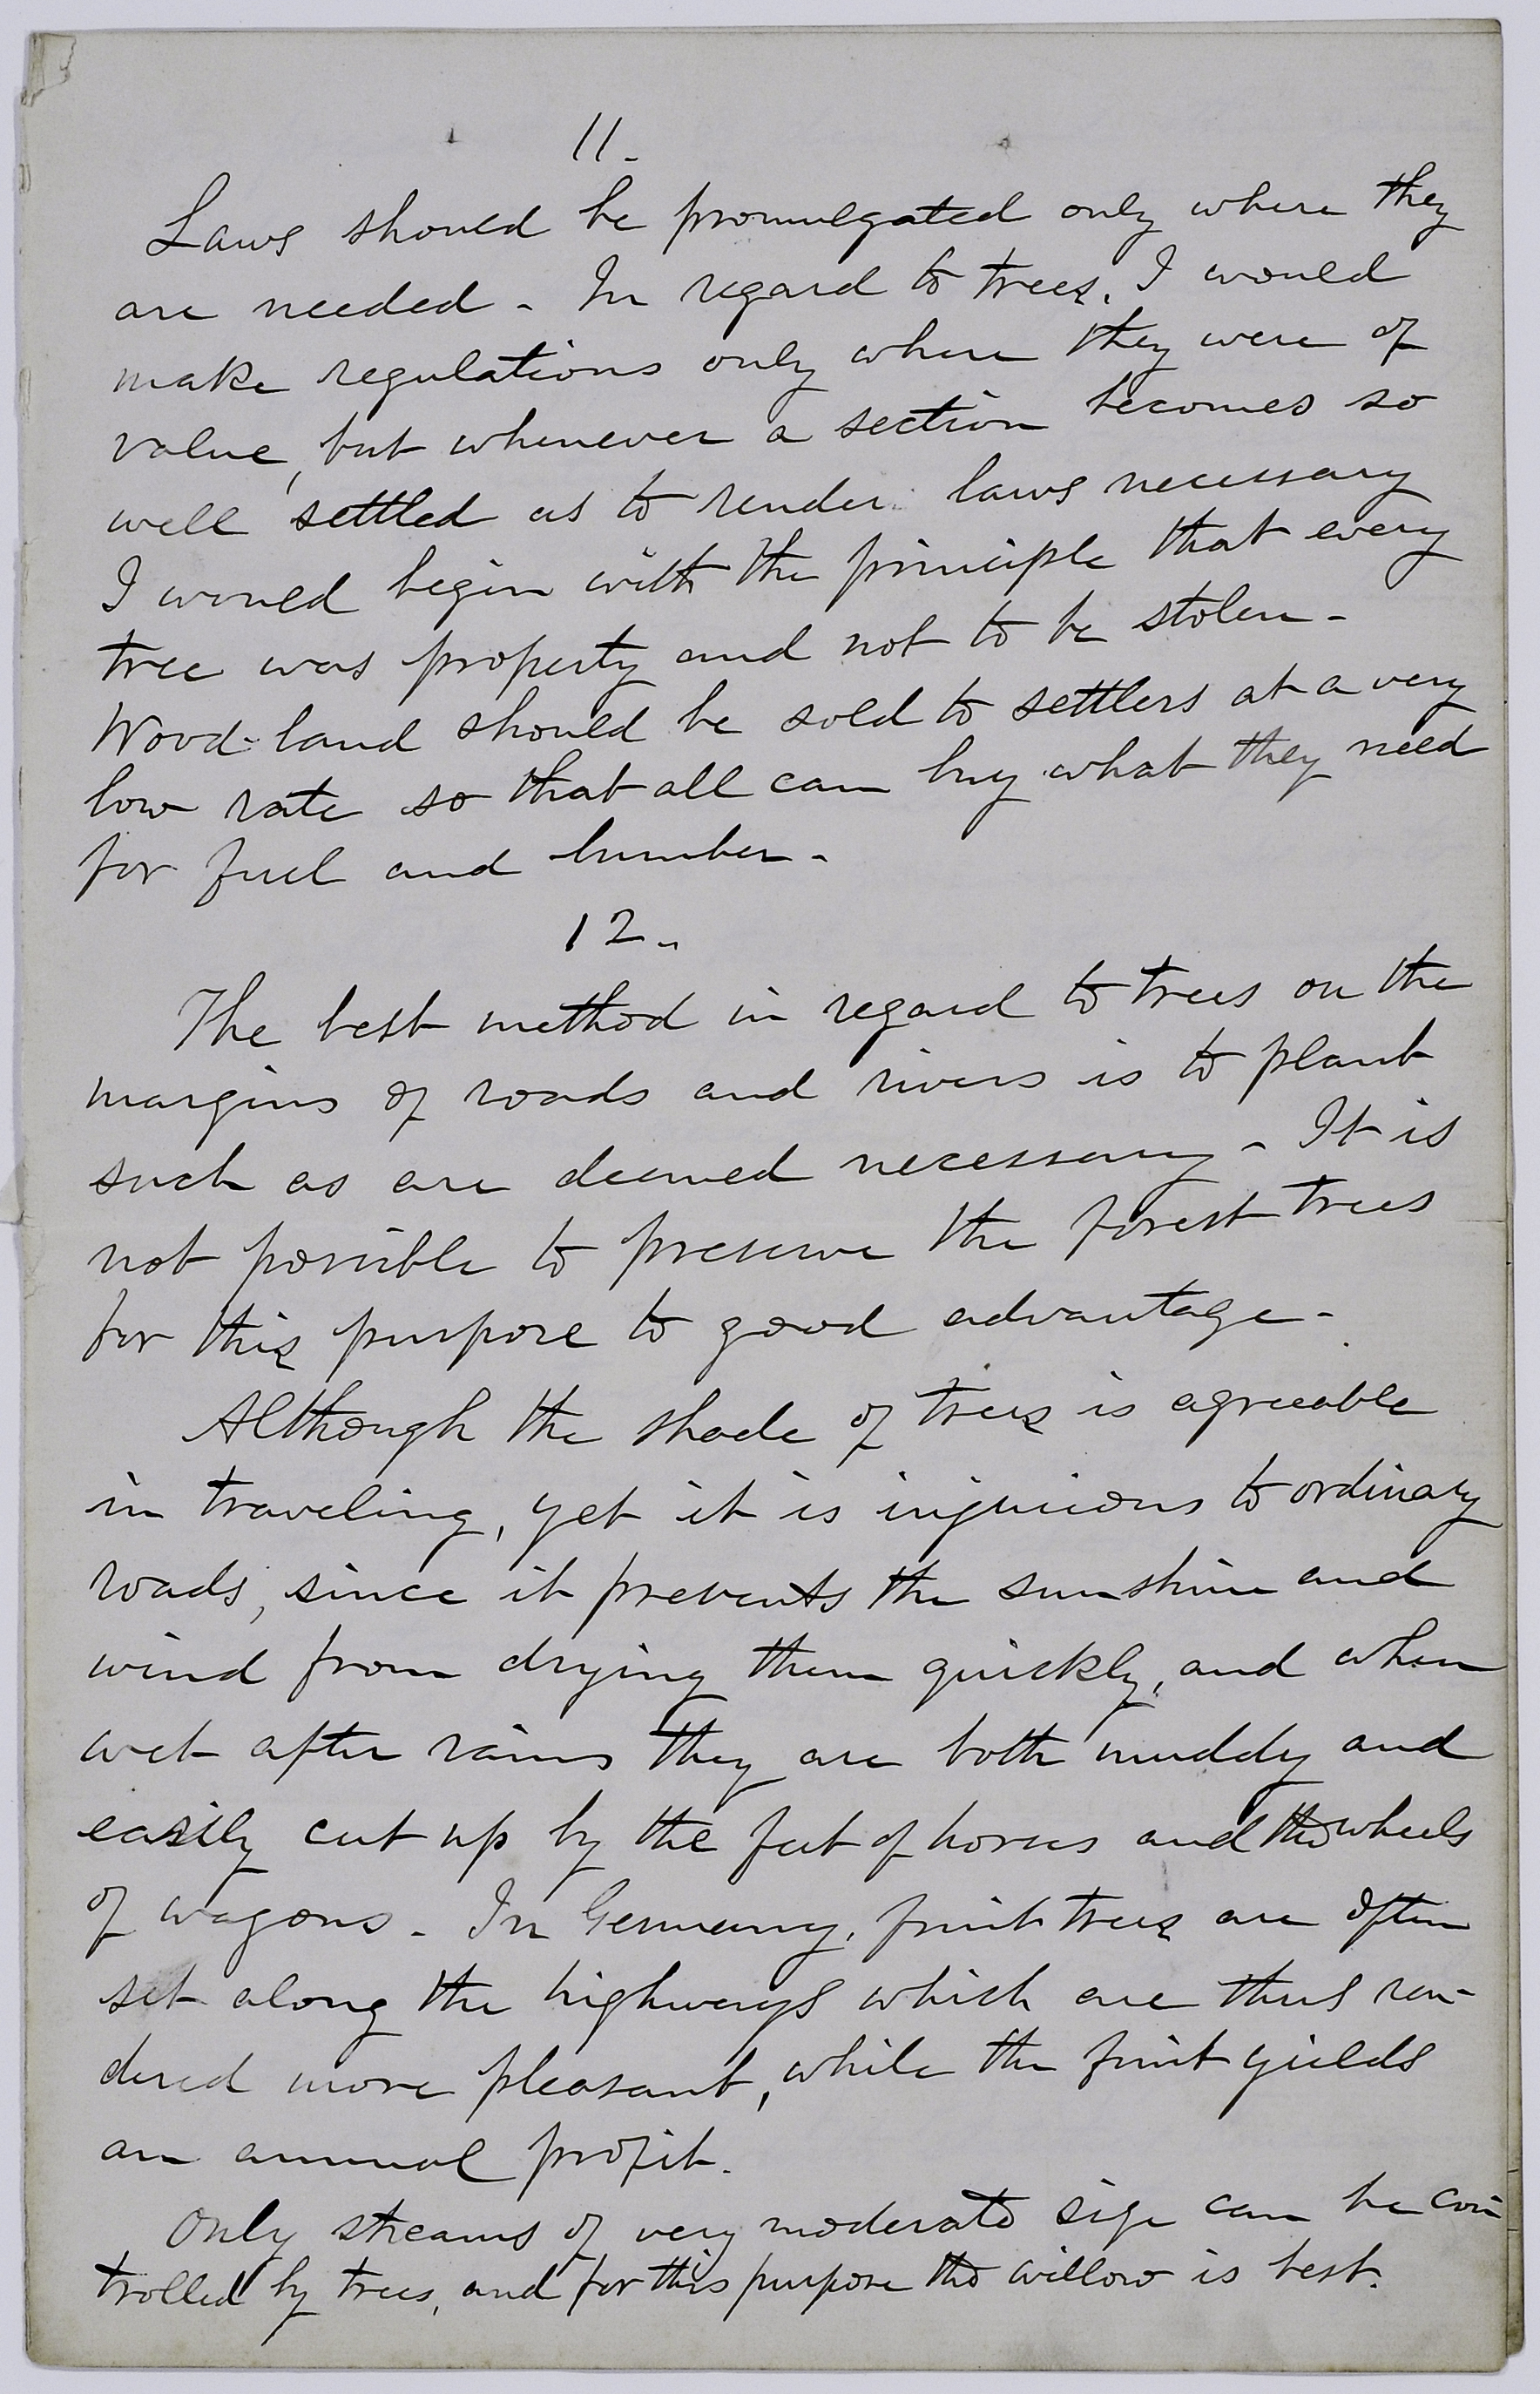 11.
Laws should be promulgated only where they
are needed - In regard to trees, I would
make regulations only where they were of
value, but whenever a section becomes so
well settled as to render laws necessary
I would begin with the principle that every
tree was property and not to be stolen -
Wood-land should be sold to settlers at a very
low rate so that all can buy what they need
for fuel and lumber -
12.
The best method in regard to trees on the
margins of roads and rivers is to plant
such as are deemed necessary - It is
not possible to preserve the forest trees
for this purpose to good advantage -
Although the shade of trees is agreeable
in traveling, yet it is injurious to ordinary
roads, since it prevents the sunshine and
wind from drying them quickly, and when
wet after rains they are both muddy and
easily cut up by the feet of horses and the wheels
of wagons - In Germany, fruit trees are often
set along the highways which are thus ren-
dered more pleasant, while the fruit yields
an annual profit.
Only streams of very moderate size can be con-
trolled by trees, and for this purpose the willow is best.